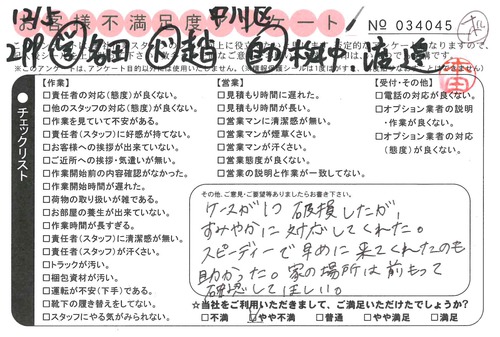 12/5 中川区
お客様不満足度アンケート
No 034045
2PP 営 名田 助 板中 渡邉
チェックリスト
【作業】
□責任者の対応(態度)が良くない。
□他のスタッフの対応(態度)が良くない。
□作業を見ていて不安がある。
□責任者(スタッフ)に好感が持てない。
□お客様への挨拶が出来ていない。
□ご近所への挨拶・気遣いが無い。
□作業開始前の内容確認がなかった。
□作業開始時間が遅れた。
□荷物の取り扱いが雑である。
□お部屋の養生が出来ていない。
□作業時間が長すぎる。
□責任者(スタッフ)に清潔感が無い。
□責任者(スタッフ)が汗くさい。
□トラックが汚い。
□梱包資材が汚い。
□運転が不安(下手)である。
□靴下の履き替えをしてない。
□スタッフにやる気がみられない。
【営業】
□見積もり時間に遅れた。
□見積もり時間が長い。
□営業マンに清潔感が無い。
□営業マンが煙草くさい。
□営業マンが汗くさい。
□営業態度が良くない。
□営業の説明と作業が一致してない。
【受付・その他】
□電話の対応が良くない。
□オプション業者の説明
・作業が良くない。
□オプション業者の対応
(態度)が良くない。
その他、ご意見・ご要望等ありましたらお書き下さい。
ケースが1つ破損したが、
すみやかに対応してくれた。
スピーディーで早めに来てくれたのも
助かった。家の場所は前もって
確認してほしい。
☆当社をご利用いただきまして、ご満足いただけたでしょうか?
□不満 □やや不満 □普通 □やや満足 □満足